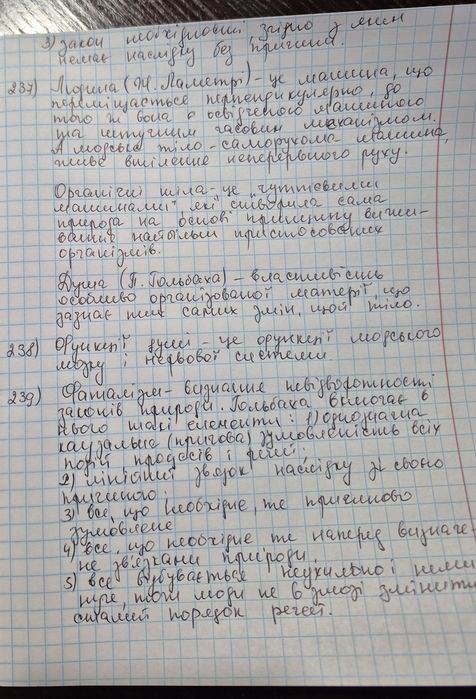 3) закон необхідності згідно з яким
немає наслідку без причини.
237) Людина (Ж. Ламетрі) – це машина, що
переміщається перпендикулярно, до
того ж вона є освідченою машиною
та штучним часовим механізмом.
А людське тіло – саморухома машина,
живе втілення неперервного руху.
Органічні тіла – це "чуттєвими
машинами", які створила сама
природа на основі принципу вижи-
вання найбільш пристосованих
організмів.
Душа (П. Гольбаха) – властивість
особливо організованої матерії, що
зазнає тих самих змін, що й тіло.
238) Функції душі – це функції людського
мозку і нервової системи
239) Фаталізм – визнання невідворотності
законів природи. Гольбаха вимагає в
нього такі елементи: 1) однозначна
каузальна (причинова) зумовленість всіх
подій процесів і речей;
2) лінійний зв'язок наслідку зі своєю
причиною;
3) все, що необхідне, те причиново
зумовлене
4) все, що необхідне те наперед визначе-
не зв'язками природи,
5) все відбувається неухильно і немину-
че, тобто люди не в змозі змінити
сталий порядок речей.